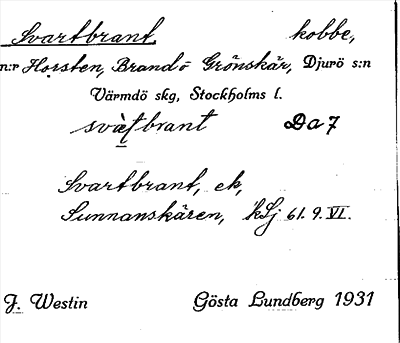 Svartbrant, kobbe,
n:r Horsten, Brandö- Grönskär, Djurö s:n
Värmdö skg, Stockholms l.
svàṭbrant Da 7
Svartbrant, ek,
Sunnanskären, kSj 61. 9. VI.
J. Westin Gösta Lundberg 1931